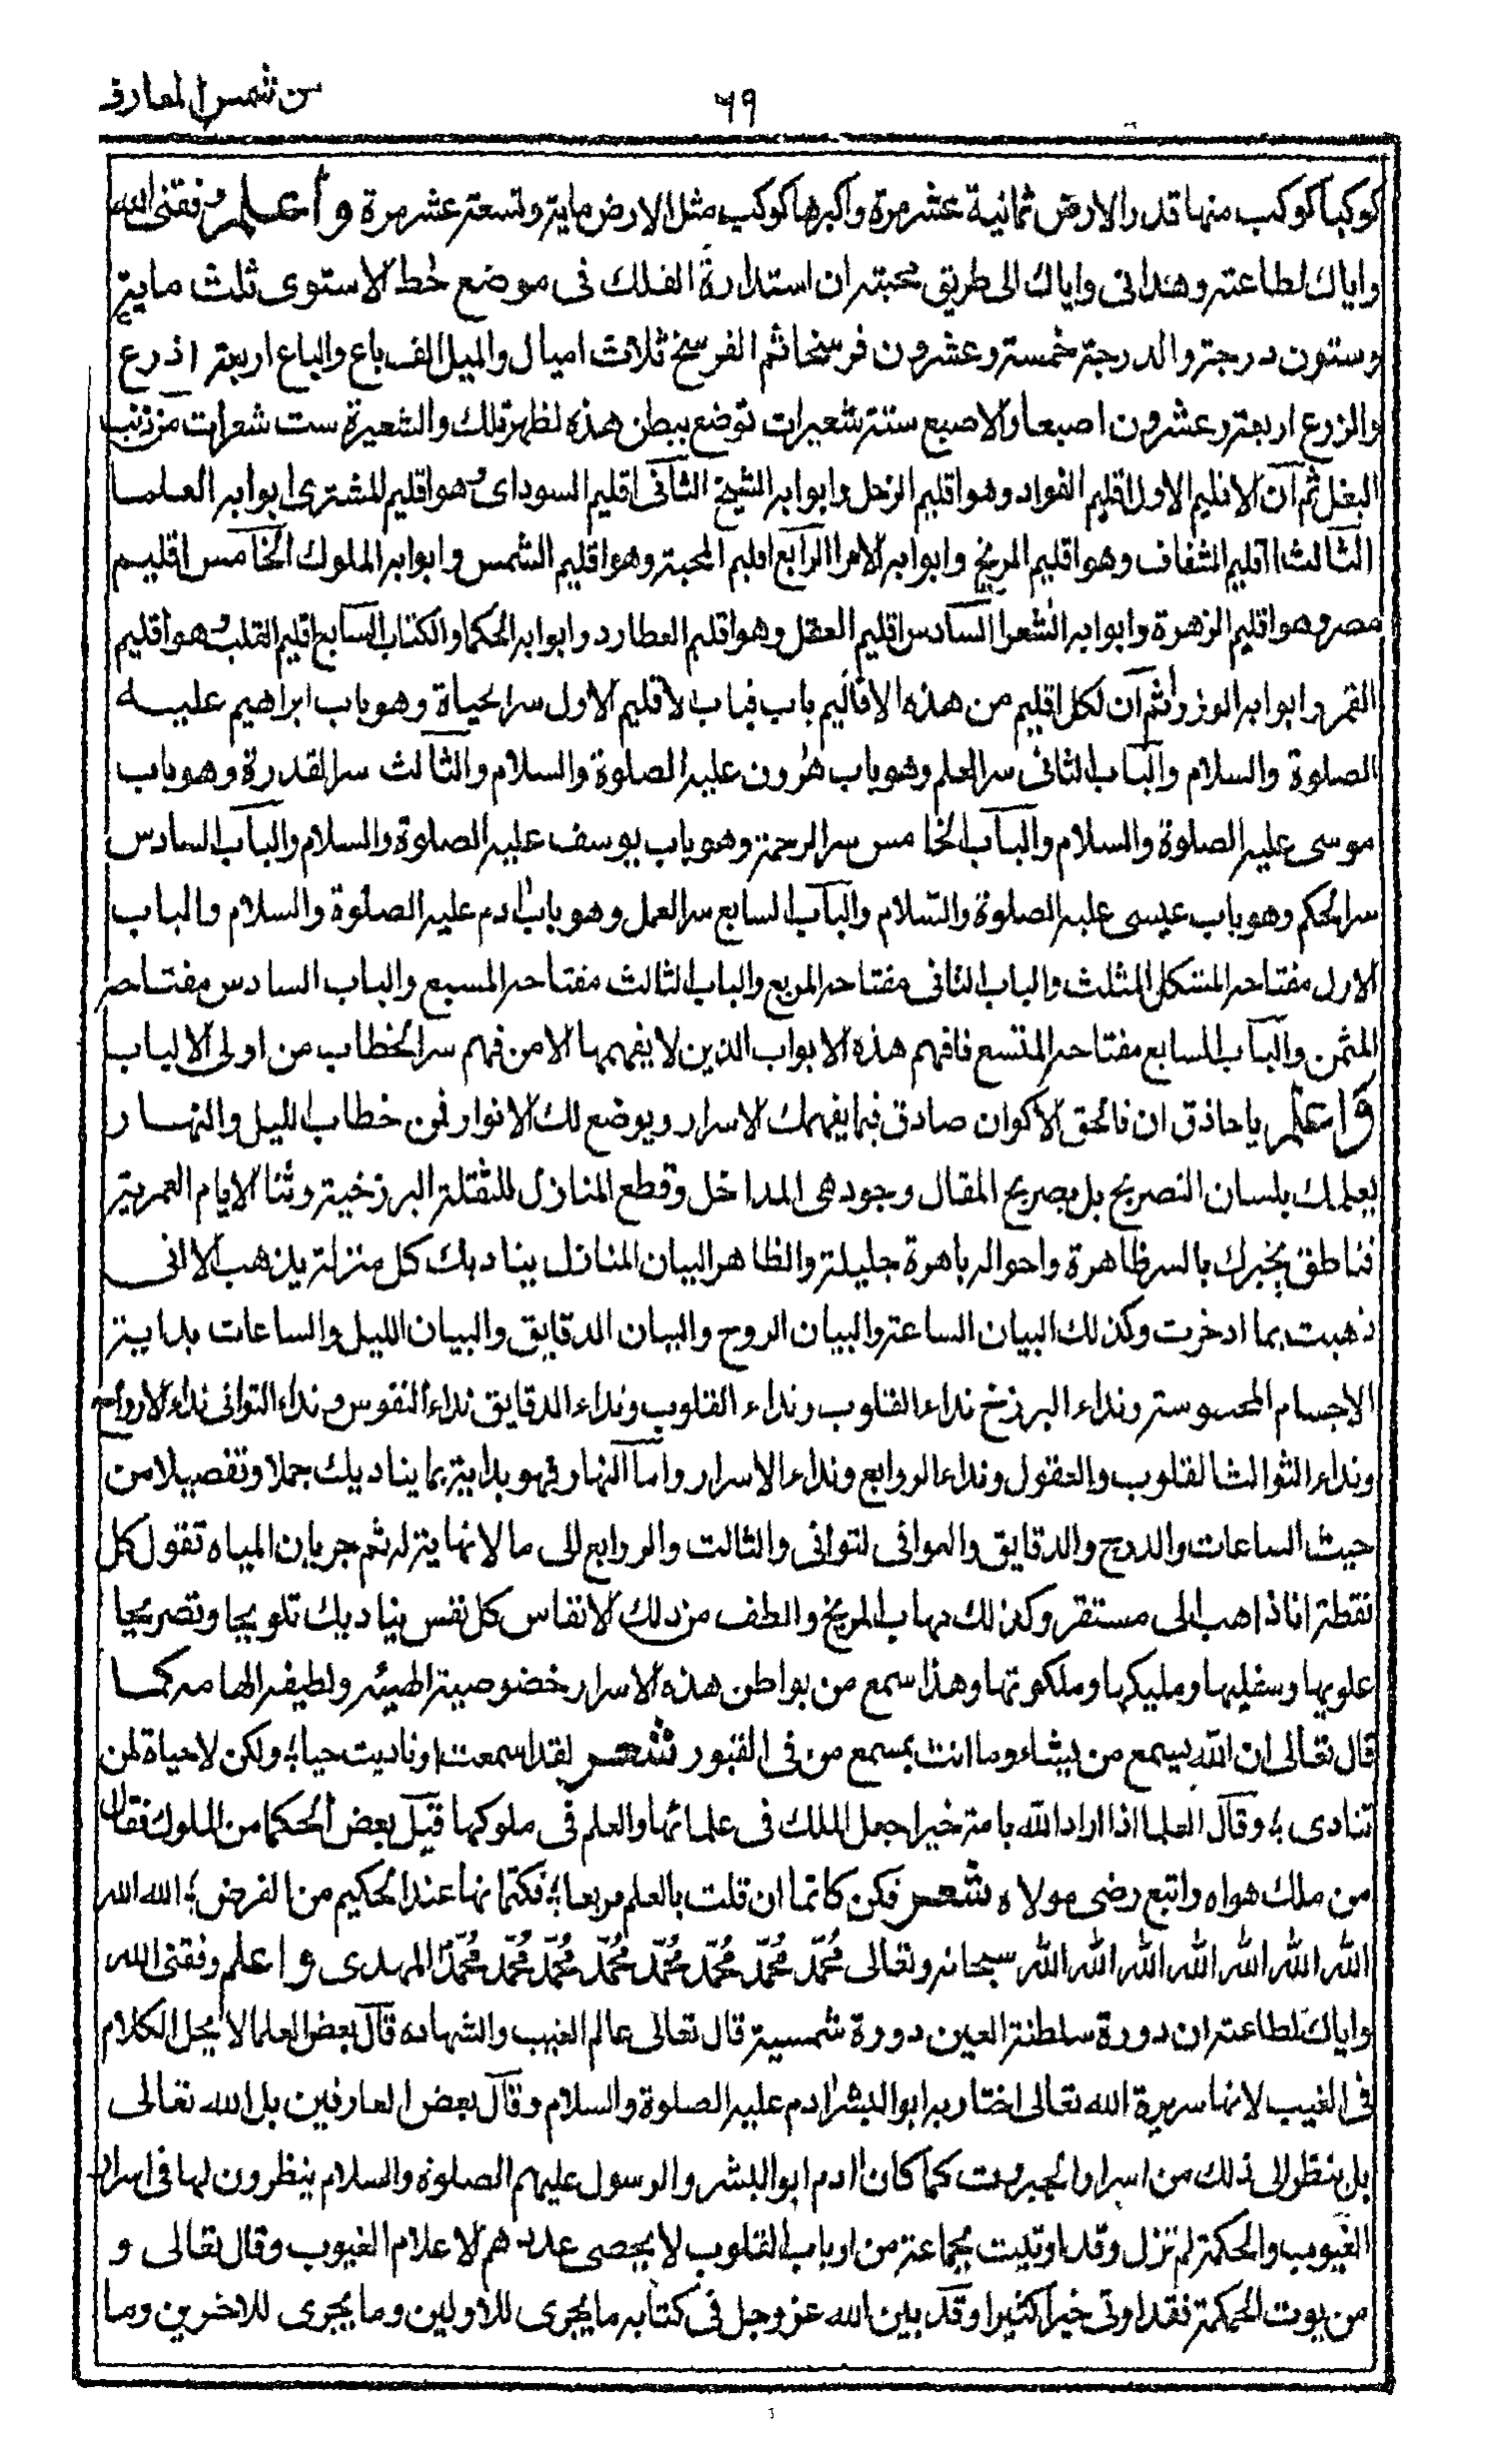 من شمس المعارف
٦٩
كوكبا كوكب منها قدر الارض ثمانية عشر مرة واكبرها كوكب مثل الارض مايتر وتسعتر عشر مرة واعلم وفقنى الله
واياك لطاعتر وهدانى واياك الى طريق محبتر ان استدارة الفلك فى موضع خط الاستوى ثلث مايتر
وستون درجتر والدرجتر خمستر وعشرون فرسخا ثم الفرسخ ثلاث اميال والميل الف باع والباع اربعتر اذرع
والزرع اربعتر وعشرون اصبعا والاصبع ستتر شعيرات توضع ببطن هذه لظهر تلك والشعيرة ست شعرات من ذنب
البغل ثم ان الاقليم الاول اقليم الفواد وهو اقليم الزحل وابوابر الشيخ الثانى اقليم السوداى وهو اقليم المشترى ابوابر العلما
الثالث اقليم الشفاف وهو اقليم المريخ وابوابر الامرا الرابع اقليم المحبتر وهو اقليم الشمس وابوابر الملوك الخامس اقليم
مصر وهو اقليم الزهرة وابوابر الشعرا السادس اقليم العقل وهو اقليم العطارد وابوابر الحكما والكتاب السابع اقليم القلب وهو اقليم
القمر وابوابر الوزرا ثم ان لكل اقليم من هذه الاقاليم باب فباب لاقليم الاول سر الحياة وهو باب ابراهيم عليه
الصلوة والسلام والباب الثانى سر العلم وهو باب هرون علير الصلوة والسلام والثالث سر القدرة وهو باب
موسى علير الصلوة والسلام والباب الخامس سر الرحمتر وهو باب يوسف علير الصلوة والسلام والباب السادس
سر الحكم وهو باب عيسى علير الصلوة والسلام والباب السابع سر العمل وهو باب ادم علير الصلوة والسلام والباب
الاول مفتاحر المشكل المثلث والباب الثانى مفتاحر المربع والباب الثالث مفتاحر المسبع والباب السادس مفتاحر
المثمن والباب السابع مفتاحر المتسع فافهم هذه الابواب الذين لا يفهمها الا من فهم سر الخطاب من اولى الالباب
واعلم يا حاذق ان فالحق الاكوان صادق فيما يفهمك الاسرار ويوضع لك الانوار فمن خطاب الليل والنهار
يعلمك بلسان التصريح بل بصريح المقال وجود هى المداخل وقطع المنازل للنقلتر البرزخيتر وثنا الايام العمريتر
فناطق يخبرك بالسر ظاهرة واحوالر باهرة جليلتر والظاهر البيان المنازل يناديك كل منزلتر يذهب الا انى
ذهبت بما ادخرت وكذلك البيان الساعتر والبيان الروح والبيان الدقايق والبيان الليل والساعات بدايتر
الاجسام المحسوستر ونداء البرزخ نداء القلوب ونداء القلوب ونداء الدقايق نداء النفوس ونداء التوانى نداء الارواح
ونداء الثوالث القلوب والعقول ونداء الروابع ونداء الاسرار واما النهار فهو بدايتر بما يناديك جملا وتفصيلا من
حيث الساعات والدرج والدقايق والموافى لتوانى والثالت والروابع الى ما لا نهايتر لر ثم جريان المياه تقول كل
نقطتر انا ذاهب الى مستقر وكذلك مهاب المريخ والطف من ذلك الانفاس كل نفس يناديك تلويحا وتصريحا
علويها وسفليها ومليكها وملكوتها وهذا سمع من بواطن هذه الاسرار خضوصيتر الهيئر ولطيفر الهامه كما
قال تعالى ان الله يسمع من يشاء وما انت بمسمع من فى القبور شعر لقد اسمعت او ناديت حيا؛ ولكن لا حياة لمن
تنادى؛ وقال العلما اذا اراد الله بامتر خيرا جعل الملك فى علمائها والعلم فى ملوكها قيل بعض الحكما من الملوك فقال
من ملك هواه واتبع رضى مولاه شعر فكن كاتما ان قلت بالعلم مربعا؛ فكتمانها عند الحكيم من الفرض؛ الله الله
الله الله الله الله الله الله الله سبحانر وتعالى محمّد محمّد محمّد محمّد محمّد محمّد محمّد المهدى واعلم وفقنى الله
واياك لطاعتر ان دورة سلطنتر العين دورة شمسيتر قال تعالى عالم الغيب والشهاده قال بعض العلما لا يحل الكلام
فى الغيب لانها سريرة الله تعالى اختار بر ابو البشر ادم علير الصلوة والسلام وقال بعض العارفين بل الله تعالى
بل ينظر الى ذلك من اسرار الجبروت كما كان ادم ابو البشر والرسول عليهم الصلوة والسلام ينظرون لها فى اسرار
الغيوب والحكمتر لم تزل وقد اوتيت بجماعتر من ارباب القلوب لا يحصى عددهم الا علام الغيوب وقال تعالى و
من يوت الحكمتر فقد اوتى خيرا كثيرا وقد بين الله عز وجل فى كتابر ما يجرى للاولين وما يجرى للاخرين وما